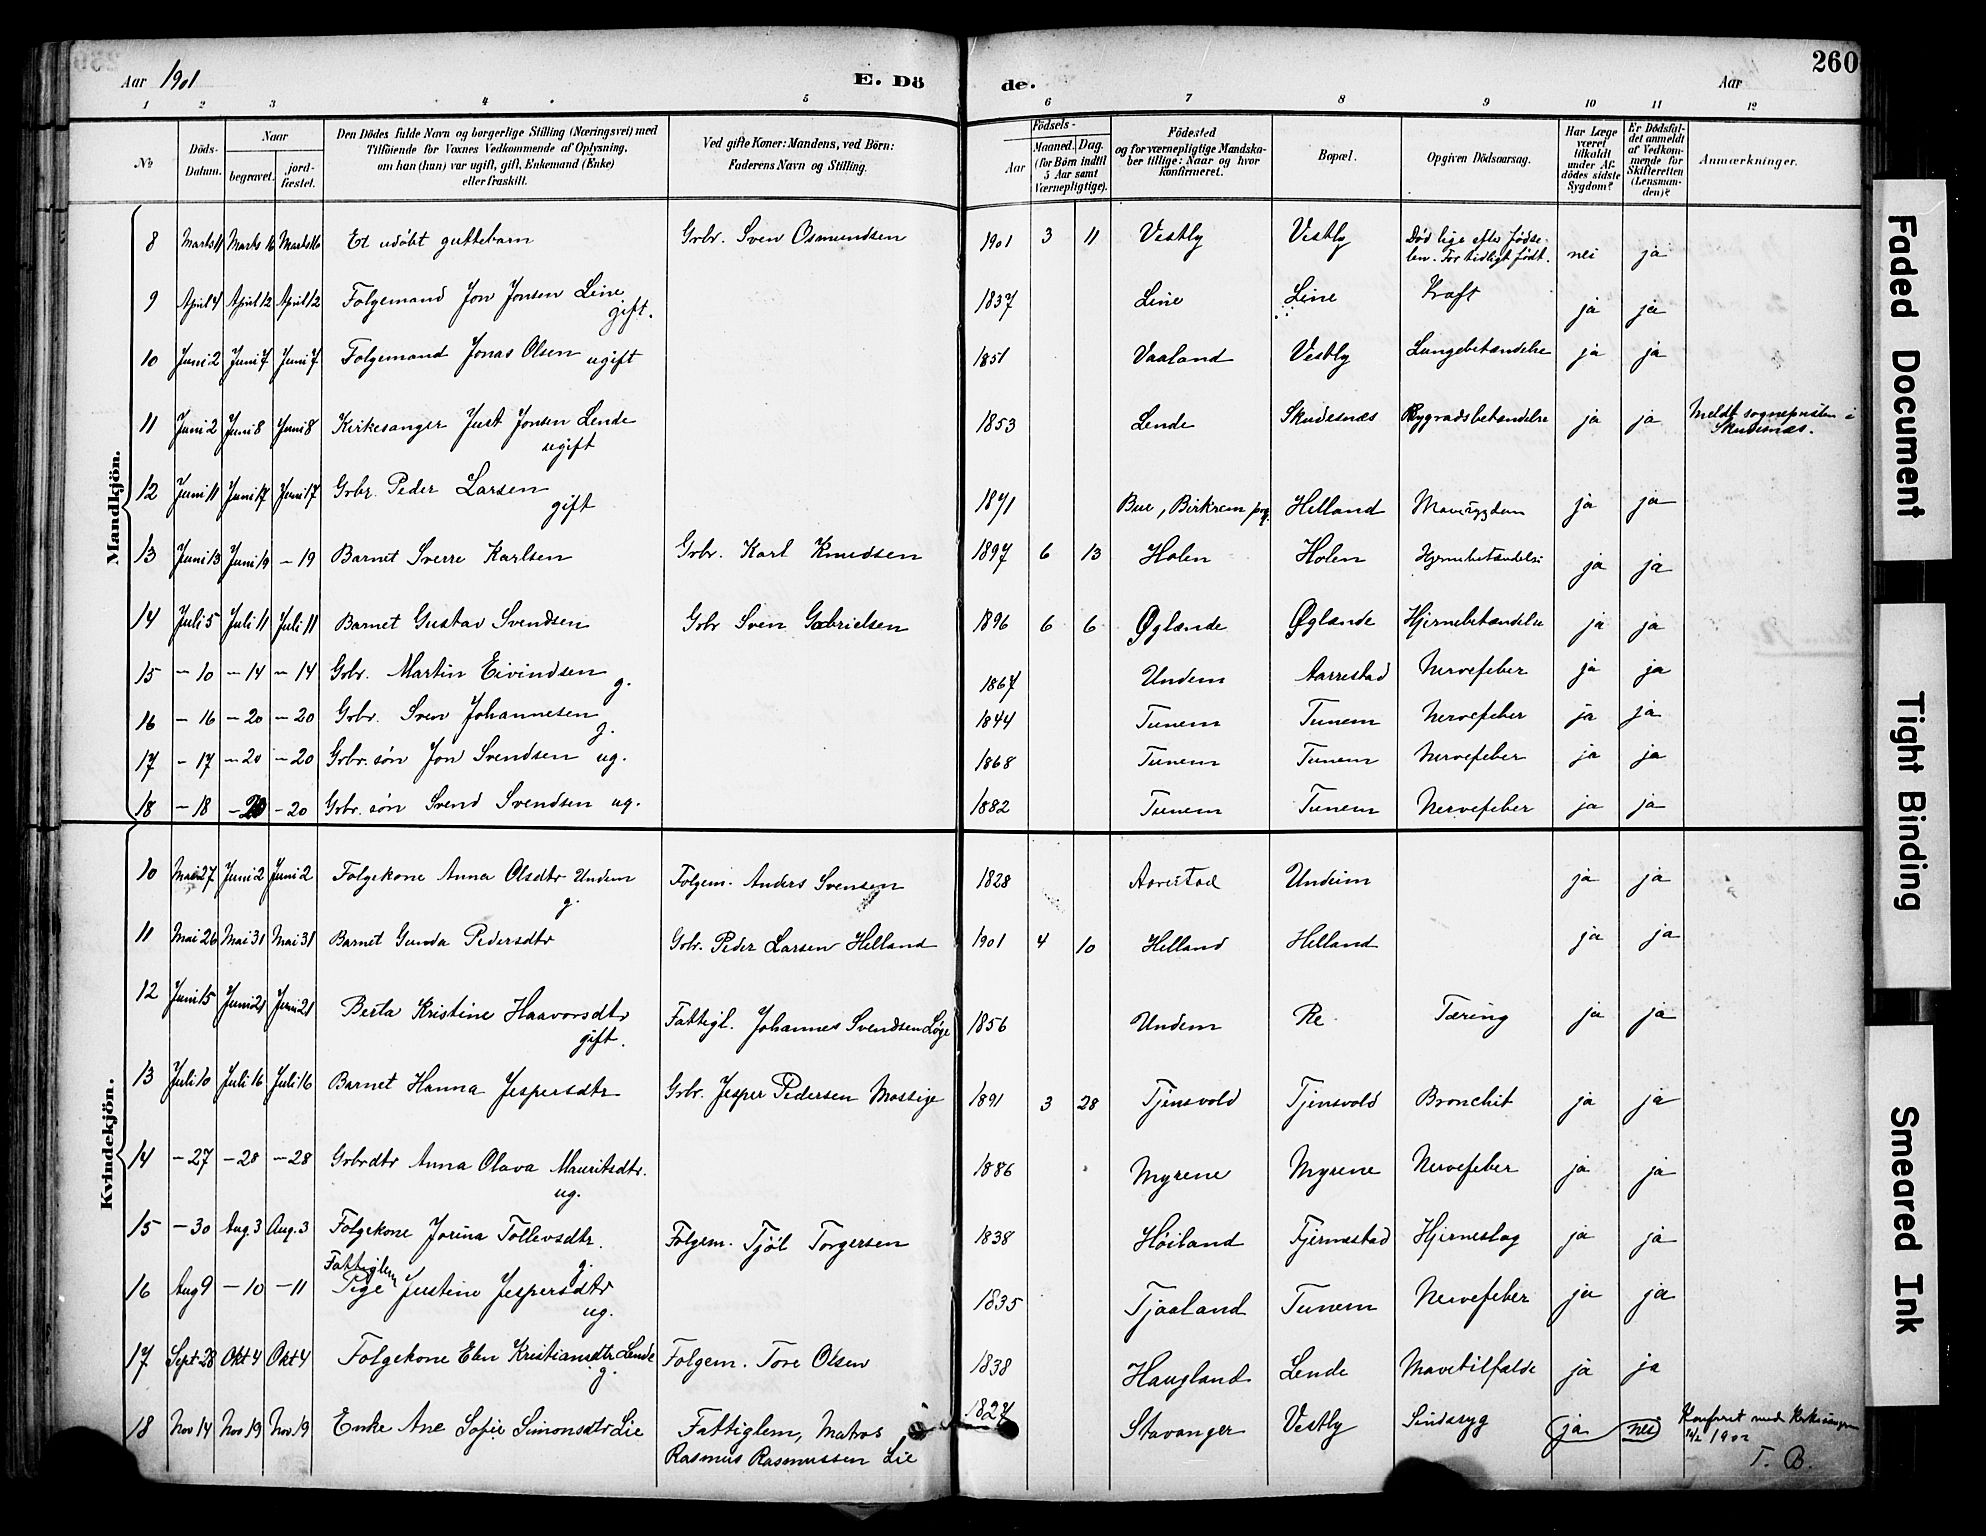 260
Aar 1901 E. Dö de. Aar
1 2 3 4 5 6 7 8 9 10 11 12
No
Döds-Datum.
Naar
begravet.
jord-fæstet.
Den Dödes fulde Navn og borgerlige Stilling (Næringsvei) med
Tilföiende for Voxnes Vedkommende af Oplysning,
om han (hun) var ugift, gift, Enkemand (Enke)
eller fraskilt.
Ved gifte Koner: Mandens, ved Börn:
Faderens Navn og Stilling.
Födsels-
Aar
Maaned. Dag.
(for Börn indtil
5 Aar samt
Værnepligtige).
Födested
og for værnepligtige Mandska-
ber tillige: Naar og hvor
konfirmeret.
Bopæl.
Opgiven Dödsaarsag.
Har Læge
været
tilkaldt
under Af-
dödes sidste
Sygdom?
Er Dödsfal-
det anmeldt
af Vedkom-
mende for
Skifteretten
(Lensman-
den)?
Anmærkninger.
Mandkjön.
8 Marts 11 Marts 16 Marts 16 Et udöbt guttebarn Grbr. Sven Osmundsen 1901 3 11 Vestly Vestly Död lige efter födse-
len. For tidligt födt. nei ja
9 April 4 April 12 April 12 Folgemand Jon Jonsen Line
gift. 1837 Line Line Kræft ja ja
10 Juni 2 Juni 7 Juni 7 Folgemand Jonas Olsen ugift 1851 Vaaland Vestly Lungebetændelse ja ja
11 Juni 2 Juni 8 Juni 8 Kirkesanger Just Jonsen Lende
ugift 1853 Lende Skudesnæs Rygradsbetændelse ja ja Meldt sognepresten i
Skudesnæs.
12 Juni 11 Juni 17 Juni 17 Grbr. Peder Larsen
gift 1871 Bue, Birkrem prg. Helland Mavesygdom ja ja
13 Juni 13 Juni 19 – 19 Barnet Sverre Karlsen Grbr. Karl Knudsen 1897 6 13 Holen Holen Hjernebetændelse ja ja
14 Juli 5 Juli 11 Juli 11 Barnet Gustav Svendsen Grbr Sven Gabrielsen 1896 6 6 Øglænde Øglænde Hjernebetændelse ja ja
15 – 10 – 14 – 14 Grbr. Martin Eivindsen g. 1867 Undem Aarrestad Nervefeber ja ja
16 – 16 – 20 – 20 Grbr. Sven Johannesen g. 1844 Tunem Tunem Nervefeber ja ja
17 – 17 – 20 – 20 Grbr. søn Jon Svendsen ug. 1868 Tunem Tunem Nervefeber ja ja
18 – 18 – 20 – 20 Grbr. søn Svend Svendsen ug. 1882 Tunem Tunem Nervefeber ja ja
Kvindekjön.
10 Mai 27 Juni 2 Juni 2 Folgekone Anna Olsdtr Undem
g. Folgem. Anders Svensen 1828 Aarestad Undeim ja ja
11 Mai 26 Mai 31 Mai 31 Barnet Gunda Pedersdtr Grbr. Peder Larsen Helland 1901 4 10 Helland Helland ja ja
12 Juni 15 Juni 21 Juni 21 Berta Kristine Haavorsdtr
gift. Fattigl. Johannes Svendsen Løge 1856 Undem Re Tæring ja ja
13 Juli 10 Juli 16 Juli 16 Barnet Hanna Jespersdtr Grbr. Jesper Pedersen Mossige 1891 3 28 Tjensvold Tjensvold Bronchit ja ja
14 – 27 – 28 – 28 Grbrdtr Anna Olava Mauritsdtr.
ug. 1886 Myrene Myrene Nervefeber ja ja
15 – 30 Aug. 3 Aug. 3 Folgekone Jorina Tollevsdtr.
g. Folgem. Tjöl Torgersen 1838 Höiland Fjermestad Hjerneslag ja ja
16 Aug 9 – 10 – 11 Fattiglem
Pige Justine Jespersdtr
ug. 1835 Tjaaland Tunem Nervefeber ja ja
17 Sept 28 Okt 4 Okt 4 Folgekone Elen Kristiansdtr Lende
g. Folgem. Tore Olsen 1838 Haugland Lende Mavetilfælde ja ja
18 Nov 14 Nov 19 Nov. 19 Enke Ane Sofie Simonsdtr Lie Fattiglem, Matros
Rasmus Rasmussen Lie 1827 Stavanger Vestly Sindssyg ja nei Konferert med Kirkesangeren
1902
T. B.
Faded Document
Tight Binding
Smeared Ink